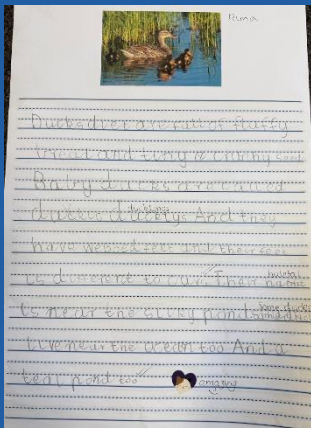 Runa
Ducks diet are full of fluffy
bread and tiny crunchy seeds
Baby ducks are called
ducklings And they
have webbed feet and their feet
is different to our. Their habitat
is near the sticky pond some ducks
live near the ocean too And a
teal pond too
amazing